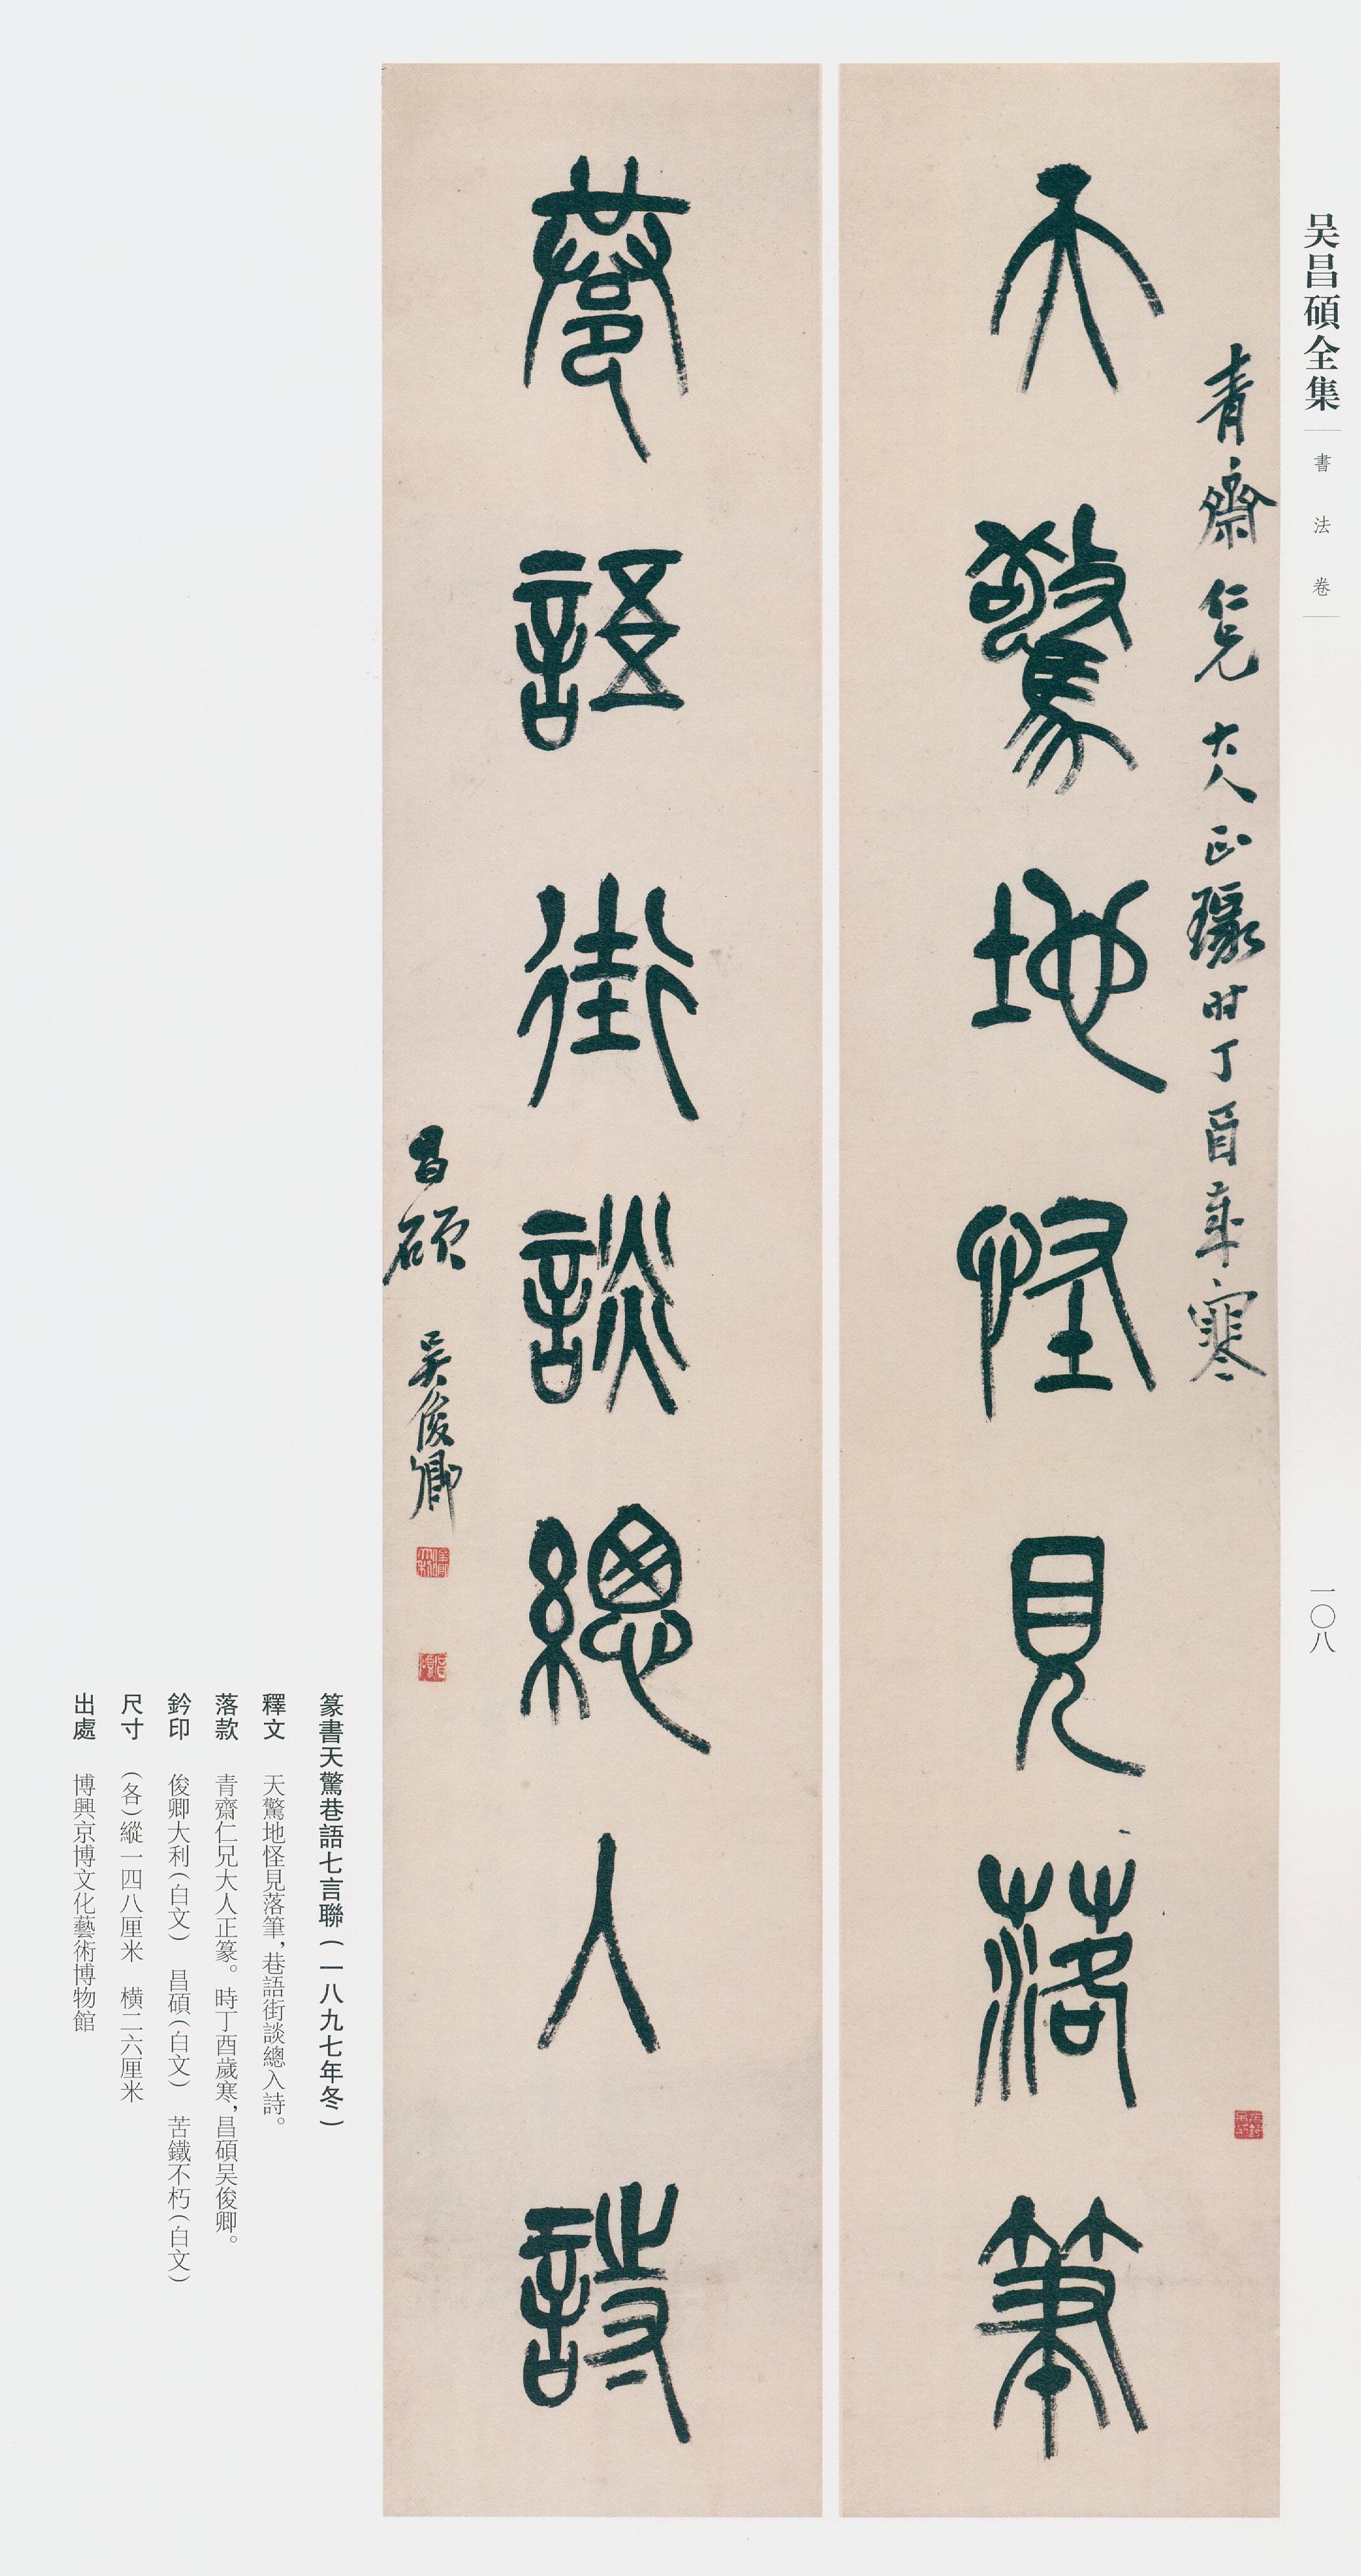 吴昌碩全集
書法卷
一〇八
青齋仁兄大人正篆時丁酉歲寒
天驚地怪見落筆
巷語街談總入詩
昌碩吴俊卿
篆書天驚巷語七言聯(一八九七年冬)
釋文 天驚地怪見落筆,巷語街談總入詩。
落款 青齋仁兄大人正篆。時丁酉歲寒,昌碩吴俊卿。
鈐印 俊卿大利(白文) 昌碩(白文) 苦鐵不朽(白文)
尺寸 (各)縱一四八厘米 橫二六厘米
出處 博興京博文化藝術博物館